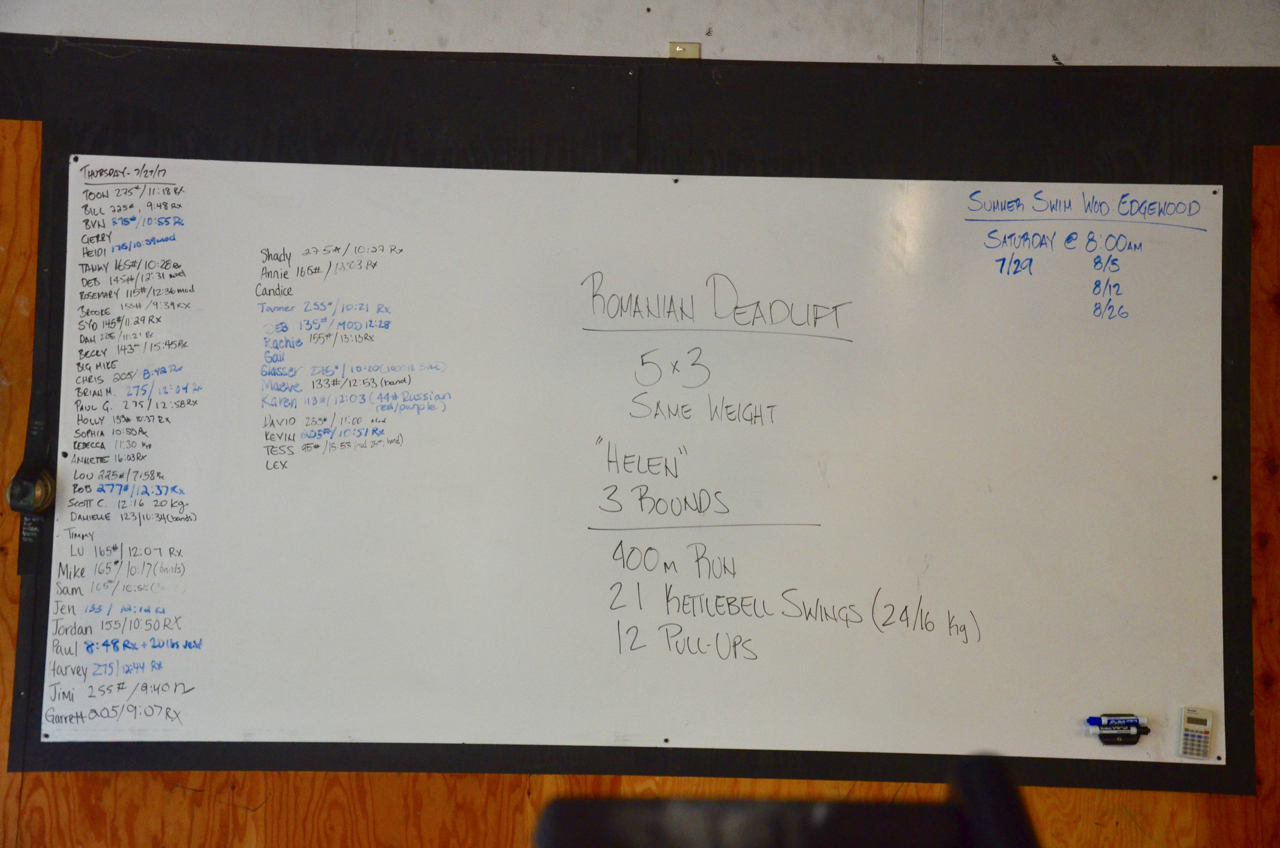 THURSDAY - 7/27/17
TOON 275#/11:18 Rx
BILL 225#, 9:48 Rx
BVN 275#/10:55 Rx
GERRY
HEIDI 175/10:59 mod
TAMMY 165#/10:28 Rx
DEB 145#/12:31 mod
ROSEMARY 115#/12:36 mod
BROOKE 155#/9:39 RX
SYD 145#/11:29 RX
DAN 205/11:21 Rx
BECKY 143#/15:45 Rx
BIG MIKE
CHRIS 205/8:42 Rx
BRIAN M. 275/12:04 Rx
PAUL G. 275/12:58 RX
HOLLY 153# 10:37 RX
SOPHIA 10:50 Rx
REBECCA 11:30
ANNETTE 16:03 RX
LOU 225#/7:58 Rx
ROB 277#/12:37 Rx
SCOTT C. 12:16 20 kg
DANIELLE 123/10:34 (bands)
TIMMY
LU 165#/12:07 RX
Mike 165#/10:17 (bands)
Sam 165#/10:50
Jen 133/12:12 Rx
Jordan 155/10:50 RX
Paul 8:48 Rx + 20 lbs vest
Harvey 275/12:44 RX
Jimi 255#/9:40
Garrett 205/9:07 RX
Shady 275#/10:27 Rx
Annie 165#/13:03 Rx
Candice
Tanner 255#/10:21 Rx
DEB 135#/MOD 12:28
Rachie 155#/13:15 Rx
Gail
Glasser 275#/10:20
Maeve 133#/12:53 (band)
Karen 113#/12:03 (44# Russian
red/purple)
DAVID 255#/11:00 Mod
KEVIN 205#/10:51 Rx
TESS 95#/15:53 band)
LEX
ROMANIAN DEADLIFT
5 x 3
SAME WEIGHT
"HELEN"
3 ROUNDS
400m RUN
21 KETTLEBELL SWINGS (24/16 kg)
12 PULL-UPS
SUMMER SWIM WOD. EDGEWOOD
SATURDAY @ 8:00AM
7/29 8/5
8/12
8/26